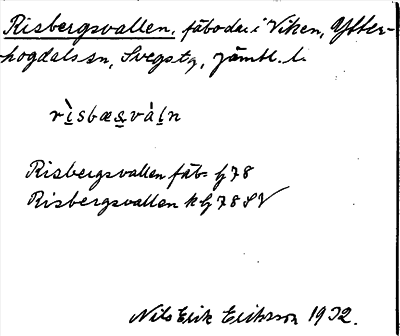 Risbergsvallen, fäbodar i Viken, Ytter-
hogdals sn, Svegs tg, Jämtl. l.
rìsbæsvàln
Risbergsvallen fäb= hg 78
Risbergsvallen k hg 78 SV
Nils Erik Eriksson 1932.